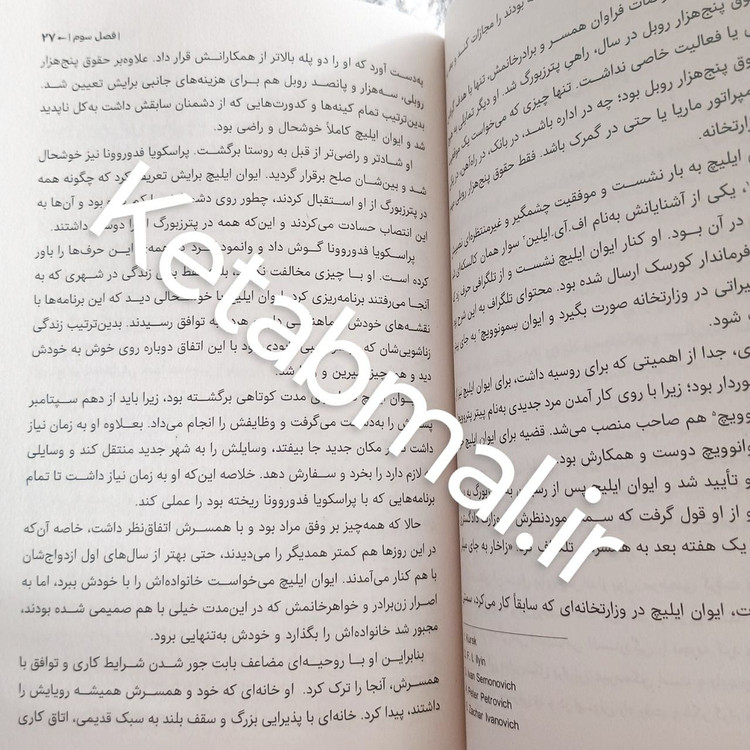 بودند را مجازات کند و
فراوان همسر و برادرخانمش، تنها با هدف
پنج‌هزار روبل در سال، راهی پترزبورگ شد. او دیگر تمایلی به
یا فعالیت خاصی نداشت. تنها چیزی که می‌خواست یک
حقوق پنج‌هزار روبل بود؛ چه در اداره باشد، در بانک، در راه‌آهن، در
امپراتور ماریا یا حتی در گمرک باشد. فقط حقوق پنج‌هزار روبلی
وزارتخانه.
ایلیچ به بار نشست و موفقیت چشمگیر و غیرمنتظره‌ای
یکی از آشنایانش به‌نام اف.آی.ایلین سوار همان کالسکه‌ای
در آن بود. او کنار ایوان ایلیچ نشست و از تلگرافی حرف زد که
فرماندار کورسک ارسال شده بود. محتوای تلگراف به این شرح
تغییراتی در وزارتخانه صورت بگیرد و ایوان سمونوویچ به جای
شود.
جدا از اهمیتی که برای روسیه داشت، برای ایوان ایلیچ نیز
برخوردار بود؛ زیرا با روی کار آمدن مرد جدیدی به‌نام پیتر پتروویچ
هم صاحب منصب می‌شد. قضیه برای ایوان ایلیچ
ایوانوویچ دوست و همکارش بود.
تأیید شد و ایوان ایلیچ پس از
و از او قول گرفت که
یک هفته بعد به
ایوان ایلیچ در وزارتخانه‌ای که سابقاً کار می‌کرد،
Kursk
F. I. Ilyin
Ivan Semonovich
Peter Petrovich
Zachar Ivanovich
| فصل سوم | ← ۲۷
به‌دست آورد که او را دو پله بالاتر از همکارانش قرار داد. علاوه‌بر حقوق پنج‌هزار
روبلی، سه‌هزار و پانصد روبل هم برای هزینه‌های جانبی برایش تعیین شد.
بدین‌ترتیب تمام کینه‌ها و کدورت‌هایی که از دشمنان سابقش داشت به‌کل ناپدید
شد و ایوان ایلیچ کاملاً خوشحال و راضی بود.
او شادتر و راضی‌تر از قبل به روستا برگشت. پراسکویا فدوروونا نیز خوشحال
شد و بین‌شان صلح برقرار گردید. ایوان ایلیچ برایش تعریف کرد که چگونه همه
در پترزبورگ از او استقبال کردند، چطور روی بود و آن‌ها به
این انتصاب حسادت می‌کردند و این‌که همه در پترزبورگ او را دوست داشتند.
پراسکویا فدوروونا گوش داد و وانمود کرد که همه‌ی این حرف‌ها را باور
کرده است. او با چیزی مخالفت نکرد، بلکه فقط برای زندگی در شهری که به
آنجا می‌رفتند برنامه‌ریزی کرد. ایوان ایلیچ با خوشحالی دید که این برنامه‌ها با
نقشه‌های خودش هماهنگی دارد و هر دو به توافق رسیدند. بدین‌ترتیب زندگی
زناشویی‌شان که بود با این اتفاق دوباره روی خوش به خودش
دید و همه‌چیز شیرین و زیبا شد.
ایوان ایلیچ برای مدت کوتاهی برگشته بود، زیرا باید از دهم سپتامبر
پستش را به‌دست می‌گرفت و وظایفش را انجام می‌داد. بعلاوه او به زمان نیاز
داشت تا در مکان جدید جا بیفتد، وسایلش را به شهر جدید منتقل کند و وسایلی
که لازم دارد را بخرد و سفارش دهد. خلاصه این‌که او به زمان نیاز داشت تا تمام
برنامه‌هایی که با پراسکویا فدوروونا ریخته بود را عملی کند.
حالا که همه‌چیز بر وفق مراد بود و با همسرش اتفاق‌نظر داشت، خاصه آن‌که
در این روزها هم کمتر همدیگر را می‌دیدند، حتی بهتر از سال‌های اول ازدواج‌شان
با هم کنار می‌آمدند. ایوان ایلیچ می‌خواست خانواده‌اش را با خودش ببرد، اما به
اصرار زن‌برادر و خواهرخانمش که در این‌مدت خیلی با هم صمیمی شده بودند،
مجبور شد خانواده‌اش را بگذارد و خودش به‌تنهایی برود.
بنابراین او با روحیه‌ای مضاعف بابت جور شدن شرایط کاری و توافق با
همسرش، آنجا را ترک کرد. او خانه‌ای که خود و همسرش همیشه رویایش را
داشتند، پیدا کرد. خانه‌ای با پذیرایی بزرگ و سقف بلند به سبک قدیمی، اتاق کاری
Ketabmal.ir